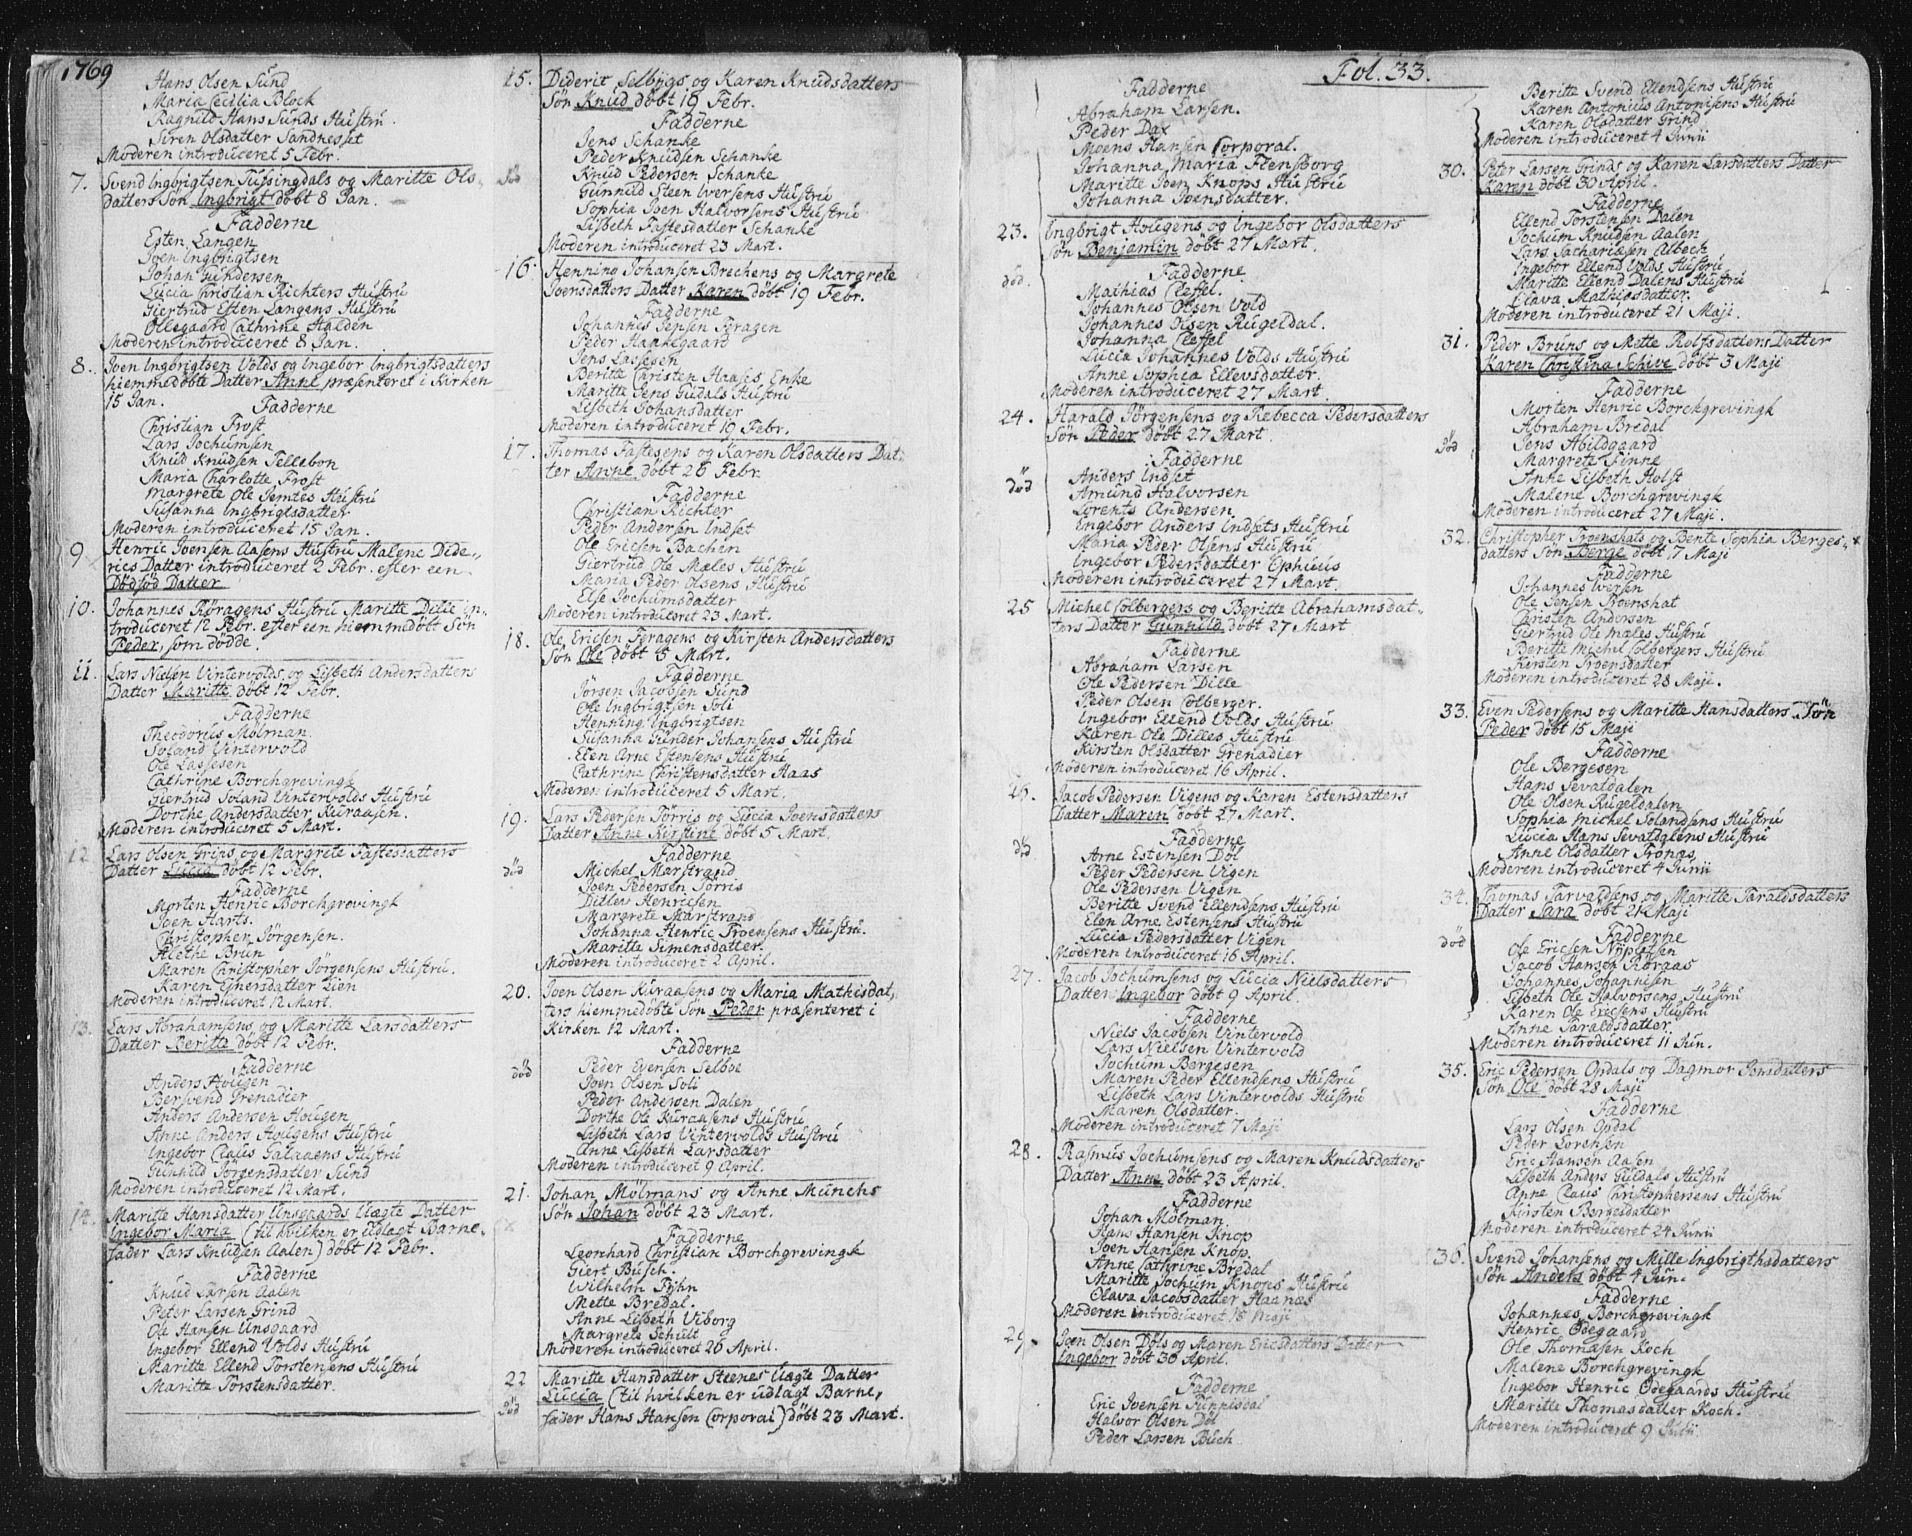 1769
Hans Olsen Sund
Maria Cecilia Block
Ragnild Hans Sunds Hustru
Siren Olsdatter Sandnesset
Moderen introduceret 5 Febr.
7. Svend Ingbrigtsen Tussingdals og Maritte Ols-
datters Søn Ingbrigt døbt 8 Jan.
Fadderne
Esten Langen
Joen Ingbrigtsen
Johan Gundersen
Lucia Christian Richters Hustru
Giertrud Esten Langens Hustru
Ollegaard Cathrine Halden
Moderen introduceret 8 Jan.
8. Joen Ingbrigtsen Volds og Ingebor Ingbrigtsdatters
hiemmedøbte Datter Anne præsenteret i Kirken
15 Jan.
Fadderne
Christian Frost
Lars Jochumsen
Knud Knudsen Tellebon
Maria Charlotte Frost
Margrete Ole Jemtes Hustru
Susanna Ingbrigtsdatter
Moderen introduceret 15 Jan.
9. Henric Joensen Aasens Hustru Malene Dide-
rics Datter introduceret 2 Febr. efter een
Dødfød Datter
10. Johannes Røragens Hustru Maritte Dille in-
troduceret 12 Febr. efter een hiemmedøbt Søn
Peder, som dødde.
11. Lars Nielsen Vintervolds og Lisbeth Andersdatters
Datter Maritte døbt 12 Febr.
Fadderne
Theodorus Molman
Soland Vintervold
Ole Lassesen
Cathrine Borchgrevingk
Giertrud Soland Vintervolds Hustru
Dorthe Andersdatter Kuraasen.
Moderen introduceret 5 Mart.
12 Lars Olsen Grips og Margrete Fastesdatters
Datter Lucia døbt 12 Febr.
Fadderne
Morten Henric Borchgrevingk
Joen Harts.
Christopher Jørgensen.
Alethe Brun
Maren Christopher Jørgensens Hustru.
Karen Einersdatter Lien
Moderen introduceret 12 Mart.
13. Lars Abrahamsens og Maritte Larsdatters
Datter Beritte døbt 12 Febr.
Fadderne
Anders Hougen
Bersvend Grenadier
Anders Andersen Hougen
Anne Anders Hougens Hustru
Ingebor Claus Galaaens Hustru
Gunnild Jørgensdatter Sund
Moderen introduceret 12 Mart.
14. Maritte Hansdatter Unsgaards Uægte Datter
Ingebor Maria (til hvilken er udlagt Barne-
fader Lars Knudsen Aalen) døbt 12 Febr.
Fadderne
Knud Larsen Aalen
Peter Larsen Grind
Ole Hansen Unsgaard
Ingebor Ellend Volds Hustru
Maritte Ellend Torstensens Hustru
Maritte Torstensdatter.
15. Diderit Selbygs og Karen Knudsdatters
Søn Knud døbt 19 Febr.
død
Fadderne
Jens Schanke
Peder Knudsen Schanke
Knud Pedersen Schanke
Gunnild Steen Iversens Hustru
Sophia Joen Halvorsens Hustru
Lisbeth Fastesdatter Schanke
Moderen introduceret 23 Mart.
16. Henning Johansen Brechens og Margrete
Joensdatters Datter Karen døbt 19 Febr.
Fadderne
Johannes Jepsen Feragen
Peder Haakegaard
Jens Lassesen
Beritte Christen Haases Enke
Maritte Jens Gudals Hustru
Lisbeth Johansdatter
Moderen introduceret 19 Febr.
17. Thomas Fastesens og Karen Olsdatters Dat-
ter Anne døbt 26 Febr.
Fadderne
Christian Richter
Peder Andersen Indset
Ole Ericsen Bachen
Giertrud Ole Mæles Hustru
Maria Peder Olsens Hustru
Else Jochumsdatter
Moderen introduceret 23 Mart.
18. Ole Ericsen Feragens og Kirsten Andersdatters
Søn Ole døbt 5 Mart.
Fadderne
Jørsen Jacobsen Sund
Ole Ingbrigtsen Soli
Henning Ingbrigtsen
Susanna Gunder Johansens Hustru
Elen Arne Estensens Hustru
Cathrine Christensdatter Haas
Moderen introduceret 5 Mart.
19. Lars Pedersen Tørris og Lucia Joensdatters
Datter Anne Kirstine døbt 5 Mart.
død
Fadderne
Michel Marstrand
Joen Pedersen Tørris
Ditlev Henricsen
Margrete Marstrand
Johanna Henric Troensens Hustru.
Maritte Simensdatter.
Moderen introduceret 2 April.
20. Joen Olsen Kuraasens og Maria Mathisdat-
ters hiemmedøbte Søn Peder præsenteret i
Kirken 12 Mart.
død
Fadderne
Peder Evensen Selboe
Joen Olsen Soli
Peder Andersen Dalen
Dorthe Ole Kuraasens Hustru
Lisbeth Lars Vintervolds Hustru
Anne Lisbeth Larsdatter
Moderen introduceret 9 April.
21. Johan Mølmans og Anne Munchs
Søn Johan døbt 23 Mart.
Fadderne
Leonhard Christian Borchgrevingk
Giert Busch.
Wilhelm Fyhn
Mette Bredal.
Anne Lisbeth Viborg
Margrete Schult
Moderen introduceret 26 April.
22 Maritte Hansdatter Steenes Uægte Datter
Lucia (til hvilken er udlagt Barne-
død
fader Hans Hansen Corporal) døbt 23 Mart.
Fol. 33.
Fadderne
Abraham Larsen.
Peder Dax
Moens Hansen Corporal.
Johanna Maria Flensborg
Maritte Joen Knops Hustru
Johanna Joensdatter.
23. Ingbrigt Hougens og Ingebor Olsdatters
Søn Benjamin døbt 27 Mart.
død.
Fadderne
Mathias Cleffel.
Johannes Olsen Vold
Johannes Olsen Rugeldal.
Johanna Cleffel
Lucia Johannes Volds Hustru
Anne Sophia Ellevsdatter.
Moderen introduceret 27 Mart.
24. Harald Jørgensens og Rebecca Pedersdatters
Søn Peder døbt 27 Mart.
død
Fadderne
Anders Indset
Amund Halvorsen
Lorents Andersen
Ingebor Anders Indsets Hustru
Maria Peder Olsens Hustru
Ingebor Pedersdatter Ephuus
Moderen introduceret 27 Mart.
25 Michel Colbergers og Beritte Abrahamsdat-
ters Datter Gunnild døbt 27 Mart
Fadderne
Abraham Larsen
Ole Pedersen Dille
Peder Olsen Colberger.
Ingebor Ellend Volds Hustru
Karen Ole Dilles Hustru
Kirsten Olsdatter Grenadier
Moderen introduceret 16 April.
26. Jacob Pedersen Vigens og Karen Estensdatters
Datter Maren døbt 27 Mart.
død
Fadderne
Arne Estensen Døl
Peder Pedersen Vigen
Ole Pedersen Vigen
Beritte Svend Ellendsens Hustru
Elen Arne Estensens Hustru
Lucia Pedersdatter Vigen
Moderen introduceret 16 April.
27. Jacob Jochumsens og Lucia Nielsdatters
Datter Ingebor døbt 9 April.
Fadderne
Niels Jacobsen Vintervold
Lars Nielsen Vintervold
Jochum Bergesen
Maren Peder Ellendsens Hustru
Lisbeth Lars Vintervolds Hustru
Maren Olsdatter.
Moderen introduceret 7 Maji
28. Rasmus Jochumsens og Maren Knudsdatters
Datter Anne døbt 23 April.
Fadderne
Johan Mølman.
Hans Hansen Knop
Joen Hansen Knop.
Anne Cathrine Bredal
Maritte Jochum Knops Hustru
Olava Jacobsdatter Haanæs
Moderen introduceret 15 Maji
29. Joen Olsen Døls og Maren Ericsdatters Datter
Ingebor døbt 30 April.
Fadderne
Eric Ivensen Funnisdal
Halvor Olsen Døl
Peder Larsen Buch
Beritte Svend Ellendsens Hustru
Karen Antonius Antonisens Hustru
Karen Olsdatter Grind
Moderen introduceret 4 Junii
30. Peter Larsen Grinds og Karen Larsdatters Datter
Karen døbt 30 April.
Fadderne
Ellend Torstensen Dalen
Jochum Knudsen Aalen
Lars Sachariasen Albech
Ingebor Ellend Volds Hustru
Maritte Ellend Dalens Hustru
Olava Mathisdatter.
Moderen introduceret 21 Maji.
31. Peder Bruns og Mette Rolfsdatters Datter
Karen Christina Schive døbt 3 Maji
død
Fadderne
Morten Henric Borchgrevingk
Abraham Bredal
Jens Abildgaard
Margrete Finne
Anne Lisbeth Holst
Malene Borchgrevingk
Moderen introduceret 27 Maji.
32. Christopher Troenshats og Bente Sophia Berges-
datters Søn Berge døbt 7 Maji
Fadderne
Johannes Iversen
Ole Jensen Troenshat
Christen Andersen
Giertrud Ole Mæles Hustru
Beritte Michel Colbergers Hustru
Kirsten Troensdatter
Moderen introduceret 28 Maji.
33. Even Pedersens og Maritte Hansdatters Søn
Peder døbt 15 Maji
Fadderne
Ole Bergesen
Hans Sevaldalen
Ole Olsen Rugeldalen
Sophia Michel Solandsens Hustru
Lucia Hans Sevatdalens Hustru
Anne Olsdatter Trønæs
Moderen introduceret 4 Junii
34. Thomas Tarvaldsens og Maritte Taraldsdatters
Datter Sara døbt 21 Maji
død
Fadderne
Ole Ericsen Nypletsen
Jacob Hansen Røraas
Johannes Johannisen
Lisbeth Ole Halvorsens Hustru
Karen Ole Ericsens Hustru
Anne Taraldsdatter.
Moderen introduceret 11 Jun.
35. Eric Pedersen Opdals og Dagmor Jonsdatters
Søn Ole døbt 28 Maji
Fadderne
Lars Olsen Opdal
Peder Lorensen
Eric Hansen Aalen
Lisbeth Anders Guldals Hustru
Anne Claus Christophersens Hustru
Kirsten Bergesdatter
Moderen introduceret 24 Junii
36. Svend Johansens og Mille Ingbrigthsdatters
Søn Anders døbt 4 Jun.
Fadderne
Johannes Borchgrevingk
Henric Ødegaard
Ole Thomasen Koch
Malene Borchgrevingk
Ingebor Henric Ødegaards Hustru
Maritte Thomasdatter Koch.
Moderen introduceret 9 Julii